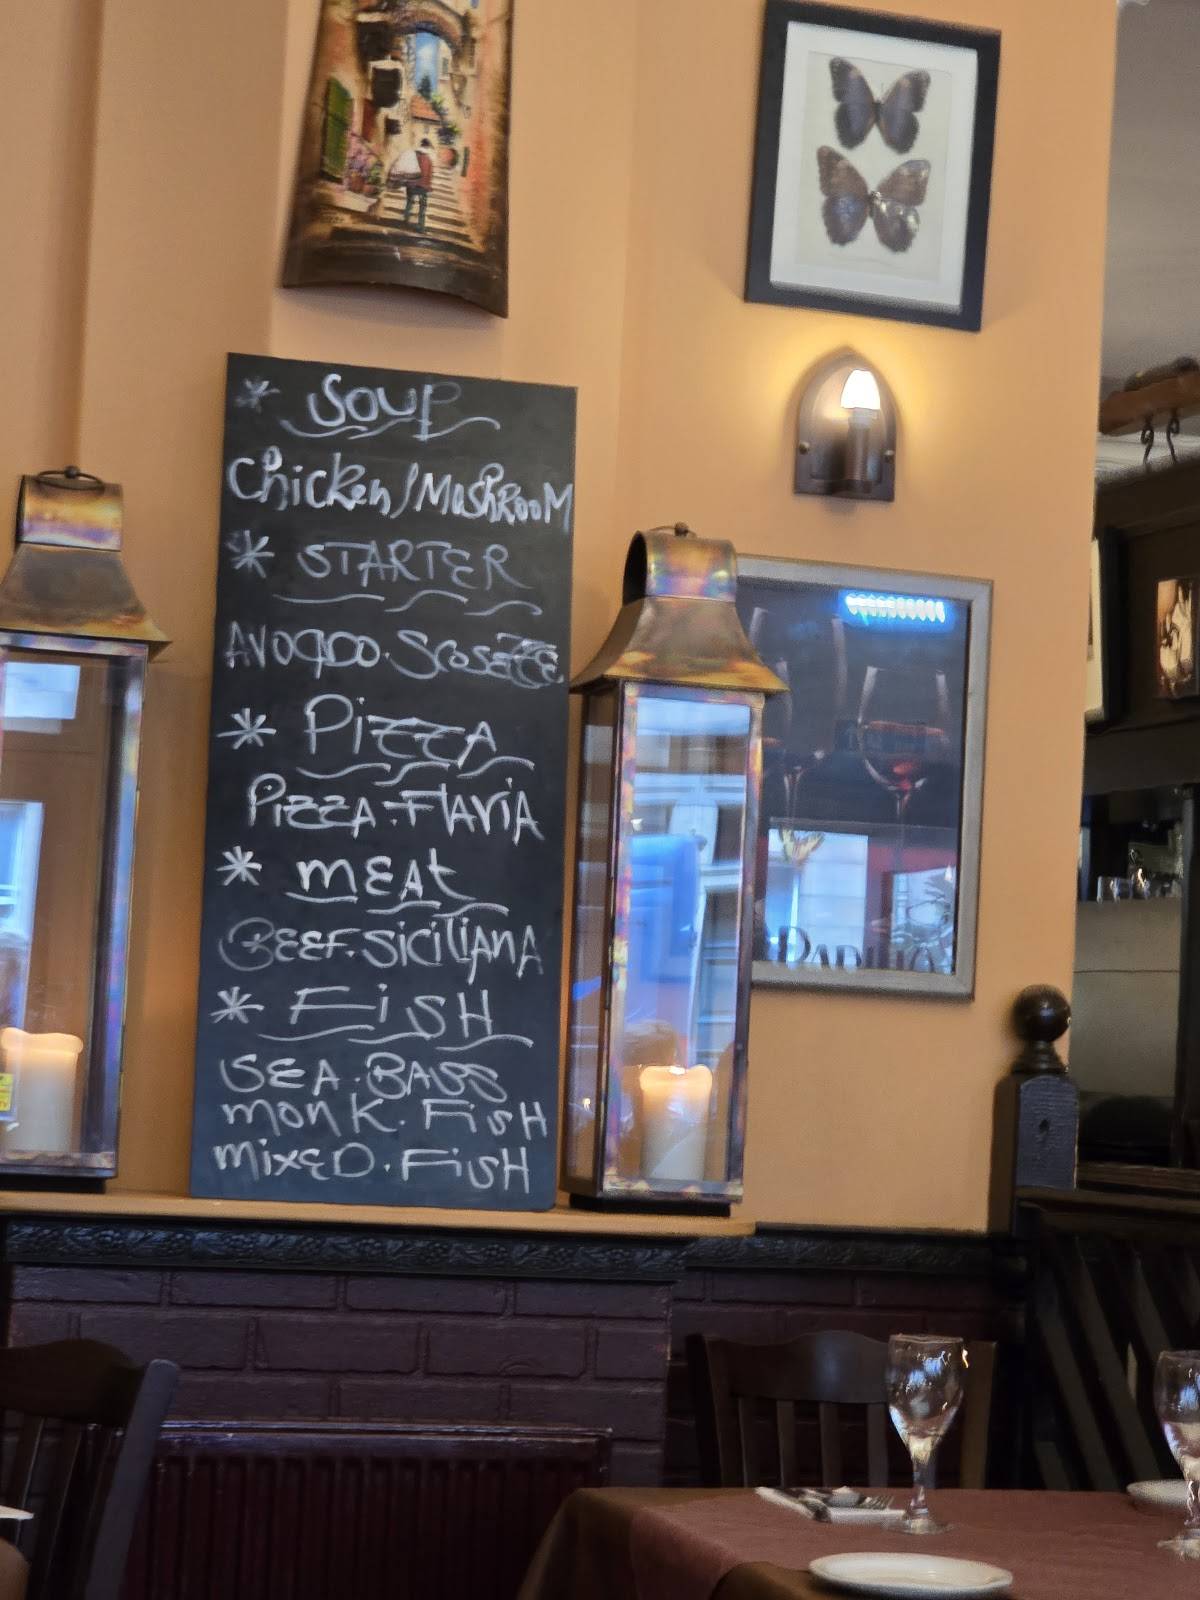 * SOUP
Chicken/MUSHROOM
* STARTER
AVOCADO.SCOSEZZE
* PiZZA
PiZZA.FlAViA
* mEAt
BEEF.SiCiliANA
* FiSH
SEA.BASS
monK.FiSH
mixED.FiSH
PAPILIO